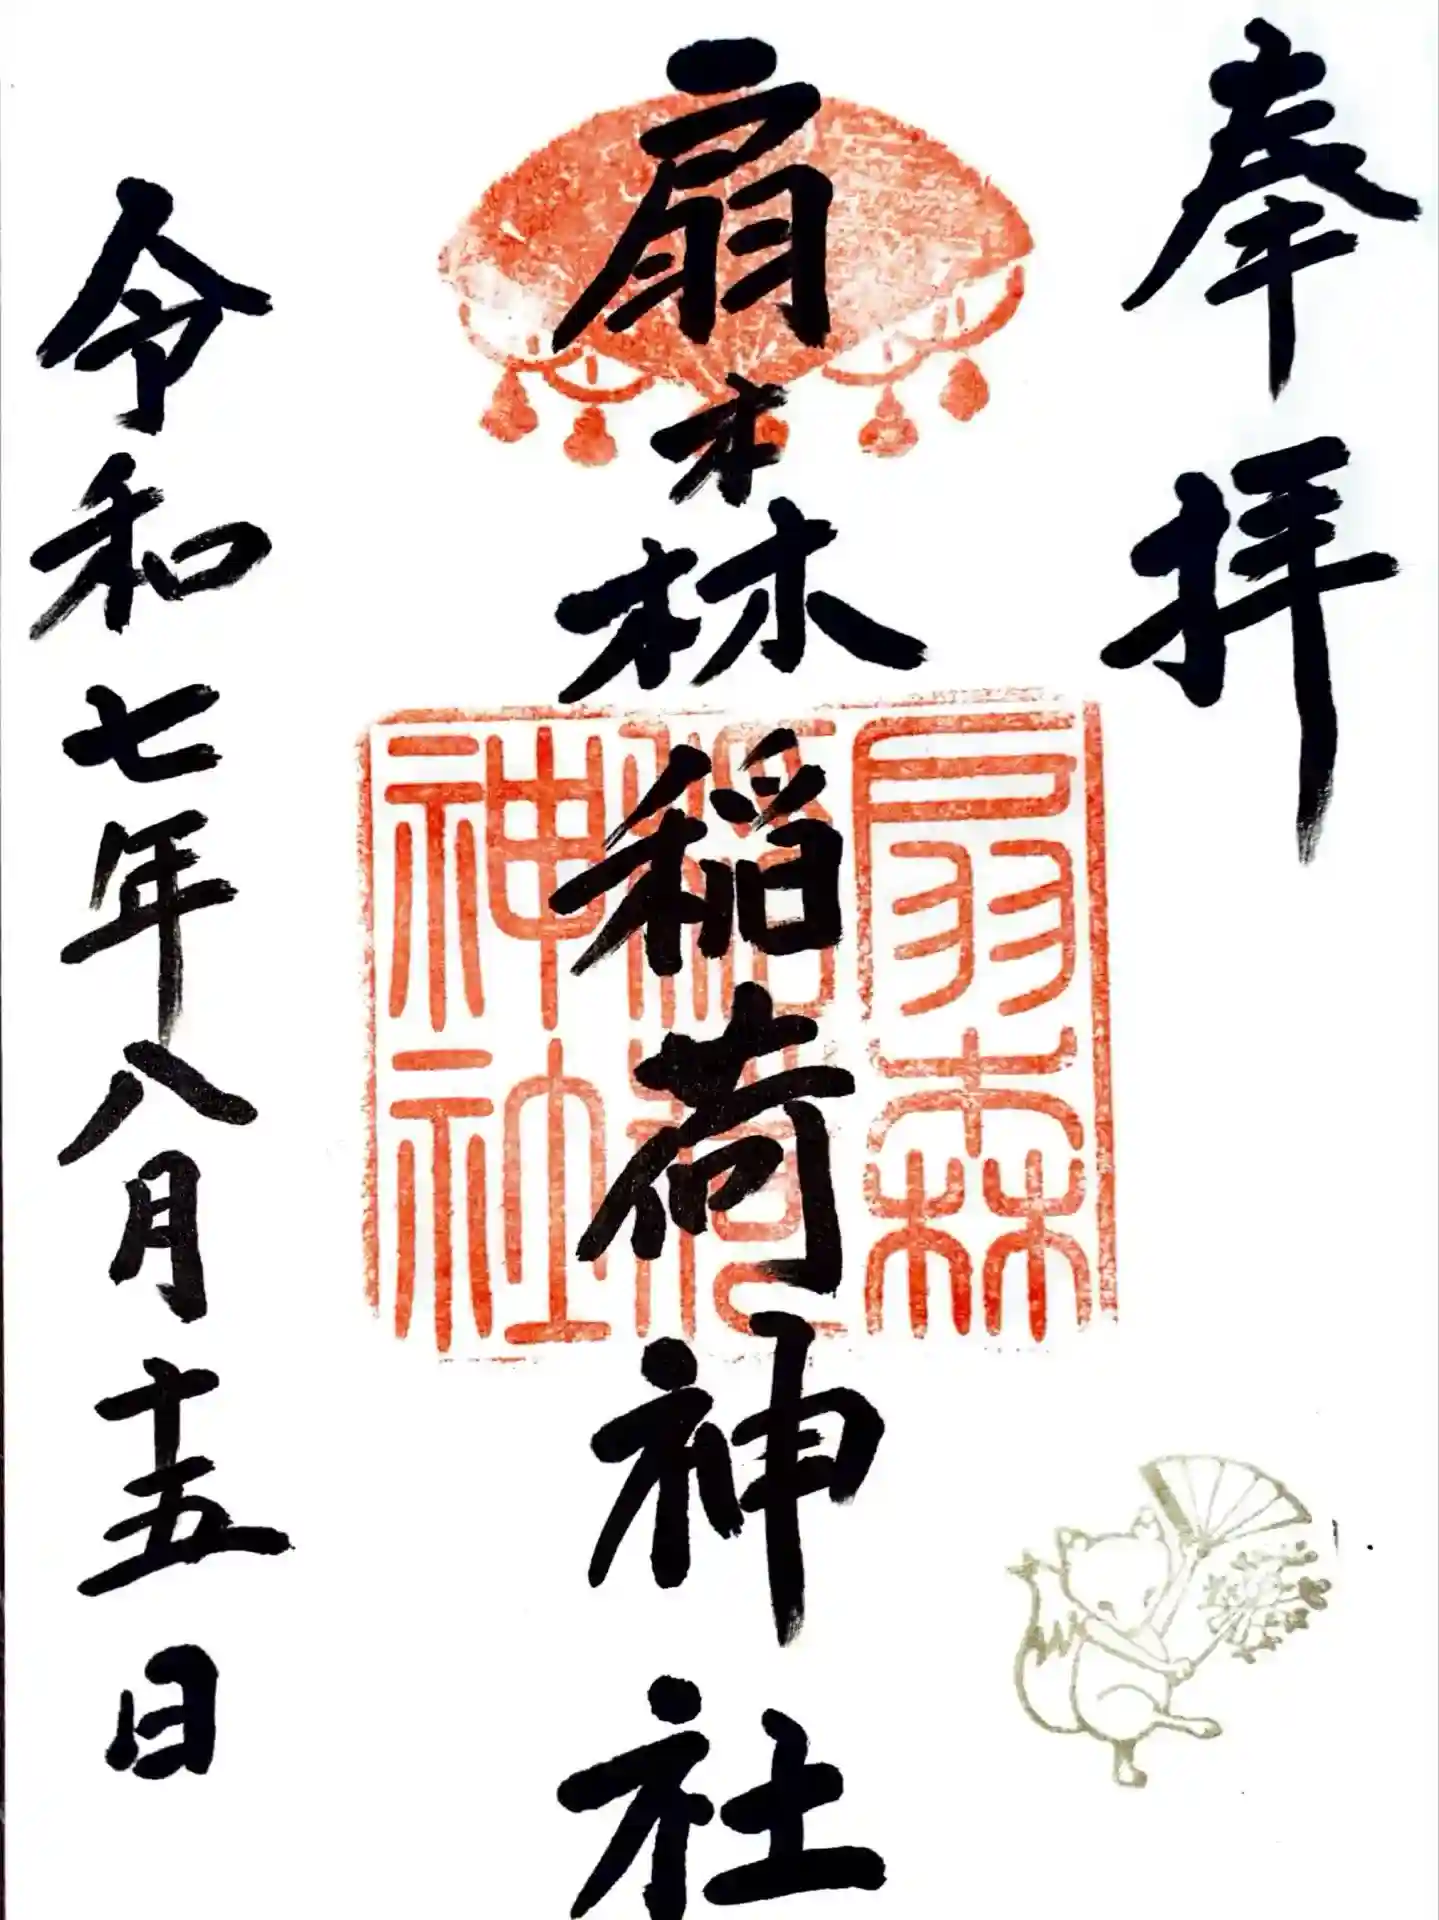 奉拝
扇森稲荷神社
扇森
稲荷
神社
令和七年八月十五日